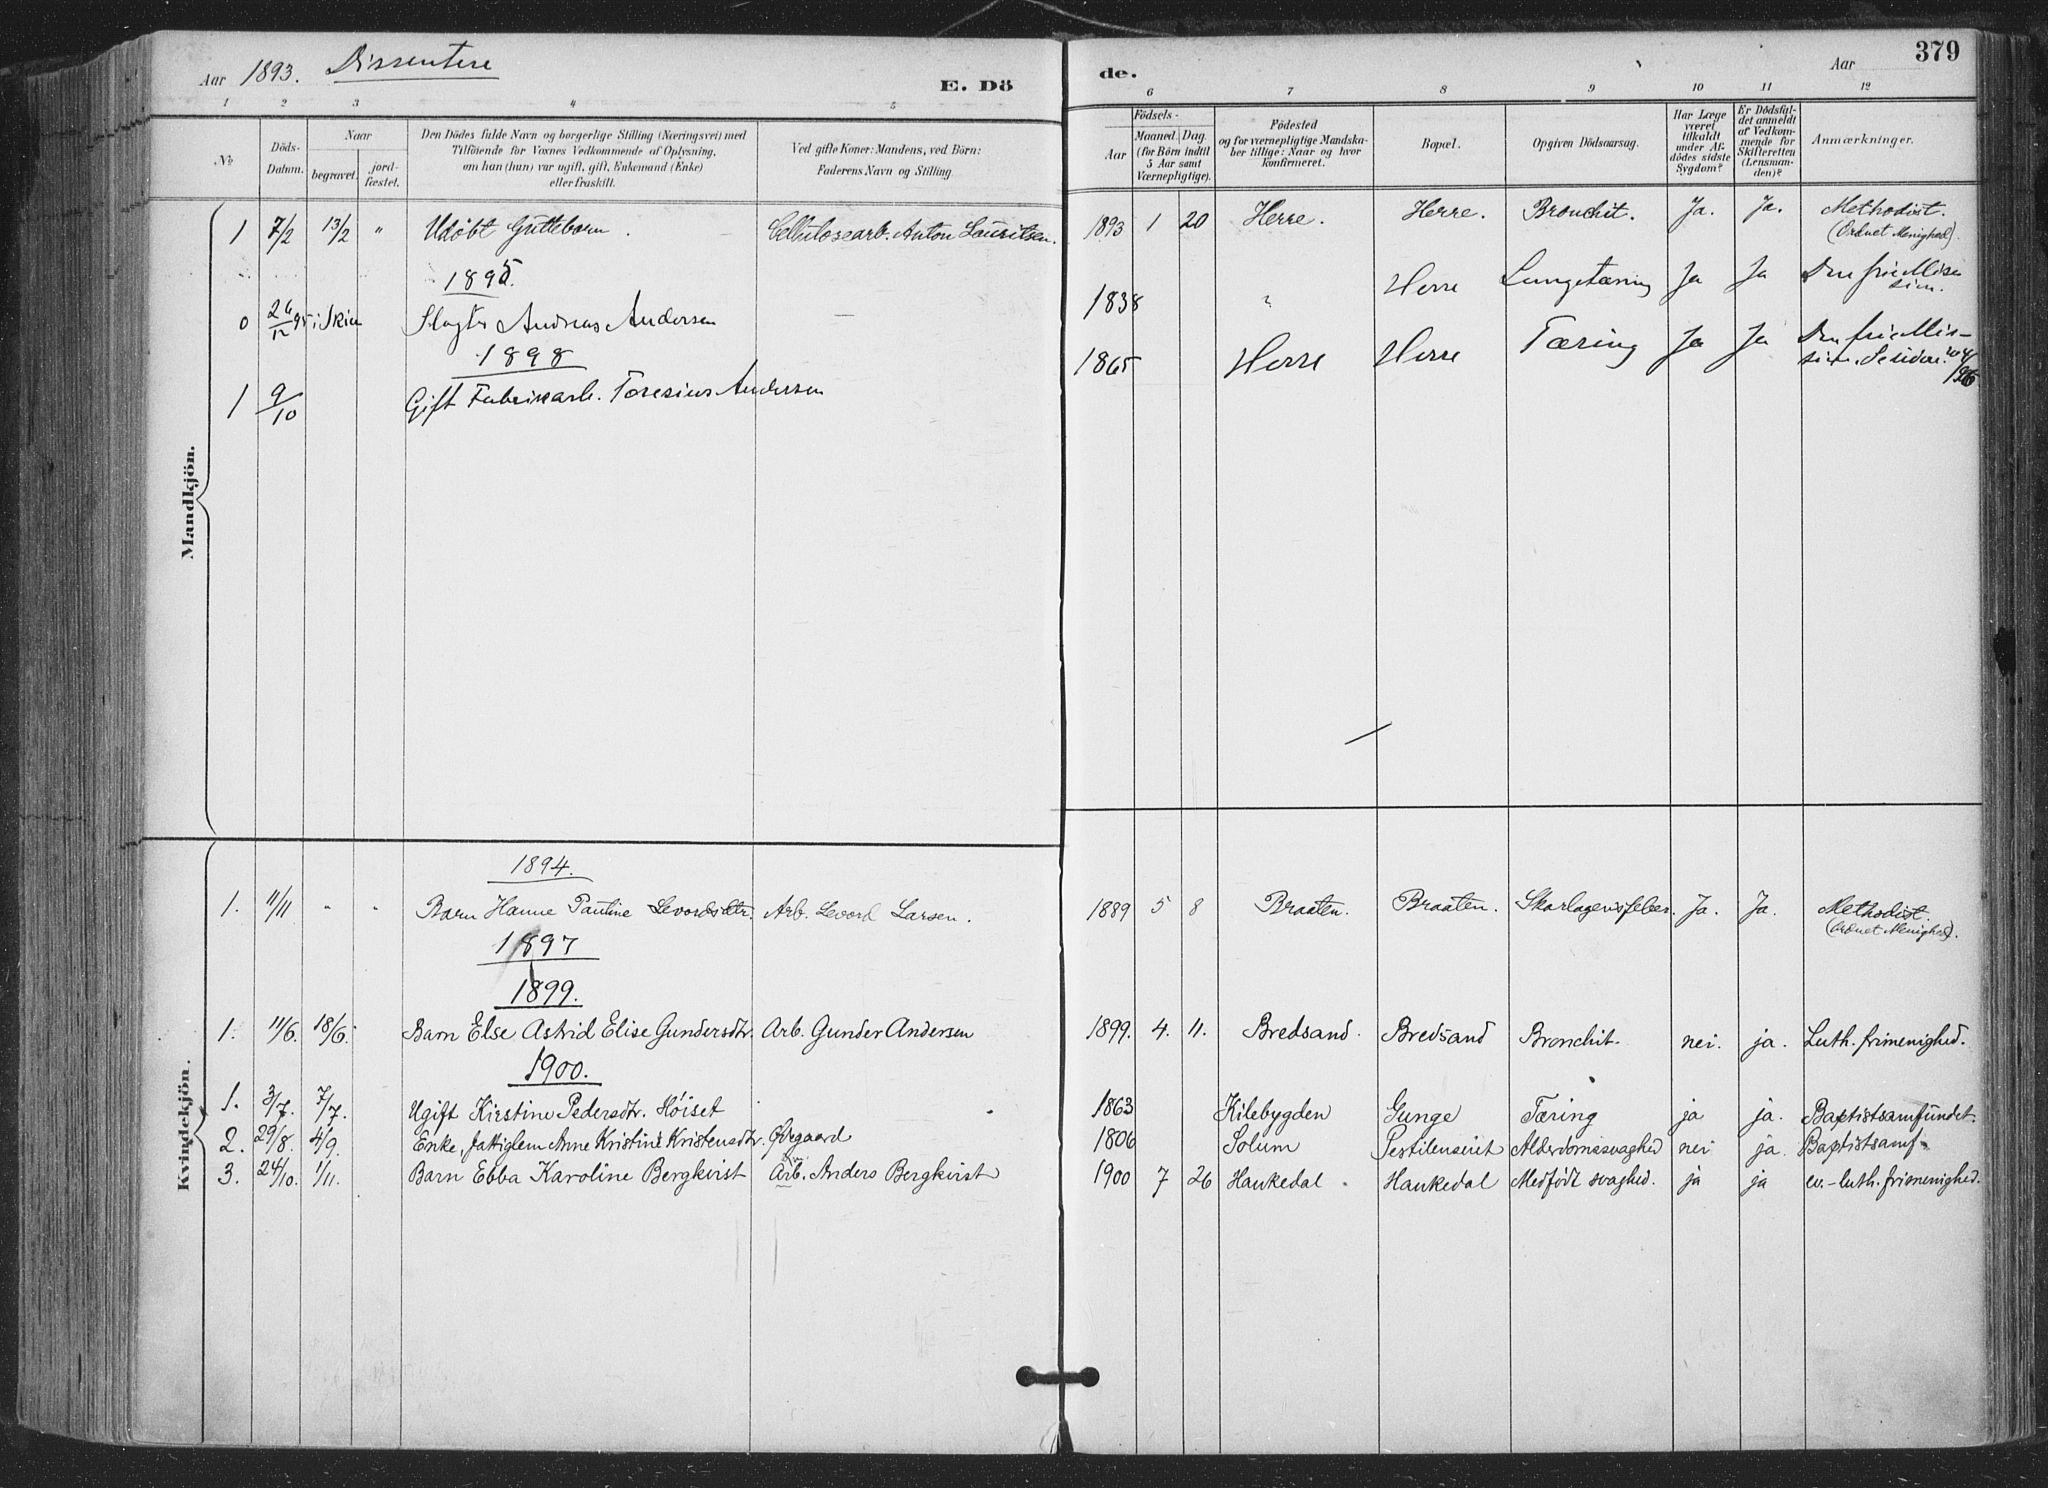 Aar 1893. Dissentere
E. Dö
de.
Aar
379
1 2 3 4 5 6 7 8 9 10 11 12
No
Döds-Datum.
Naar
begravet.
jord-fæstet.
Den Dödes fulde Navn og borgerlige Stilling (Næringsvei) med
Tilföiende for Voxnes Vedkommende af Oplysning,
om han (hun) var ugift, gift, Enkemand (Enke)
eller fraskilt.
Ved gifte Koner: Mandens, ved Börn:
Faderens Navn og Stilling.
Födsels-
Aar
Maaned. Dag.
(for Börn indtil
5 Aar samt
Værnepligtige).
Födested
og for værnepligtige Mandska-
ber tillige: Naar og hvor
konfirmeret.
Bopæl.
Opgiven Dödsaarsag.
Har Læge
været
tilkaldt
under Af-
dödes sidste
Sygdom?
Er Dödsfal-
det anmeldt
af Vedkom-
mende for
Skifteretten
(Lensman-
den)?
Anmærkninger.
Mandkjön.
1 7/2 13/2 " Udøbt Guttebarn. Cellulosearb. Anton Lauritsen. 1893 1 20 Herre. Herre. Bronchit. Ja. Ja. Methodist.
(Ordnet Menighed).
1895.
0 26/12 95 i Skien Slagter Andreas Andersen — 1838 " Herre Lungetæring Ja Ja Den frie Mission.
1898
1 9/10 Gift Fabrikarb. Toresius Andersen 1865 Herre Herre Tæring Ja Ja Den frie Mis-
sion.
Kvindekjön.
1894.
1. 11/11 " " Barn Hanne Pauline Levordsdtr. Arb. Levord Larsen. 1889 5 8 Braaten. Braaten. Skarlagensfeber. Ja. Ja. Methodist.
(Ordnet Menighed).
1897
1899.
1. 11/6. 18/6. Barn Else Astrid Elise Gundersdtr. Arb. Gunder Andersen 1899. 4. 11. Bredsand. Bredsand Bronchit. nei. ja. Luth. frimenighed.
1900.
1. 3/7. 7/7. Ugift Kirstine Pedersdtr. Høiset 1863 Kilebygden Gunge Tæring ja ja. Baptistsamfundet.
2. 29/8. 4/9. Enke, fattiglem Anne Kristine Kristensdtr. Øvegaard 1806 Solum Pestilenseiet Alderdomssvaghed nei ja. Baptistsamf.
3. 24/10. 1/11. Barn Ebba Karoline Bergkvist Arb. Anders Bergkvist 1900 7 26 Haukedal Haukedal Medfødt svaghed. ja ja ev.-luth. frimenighed.